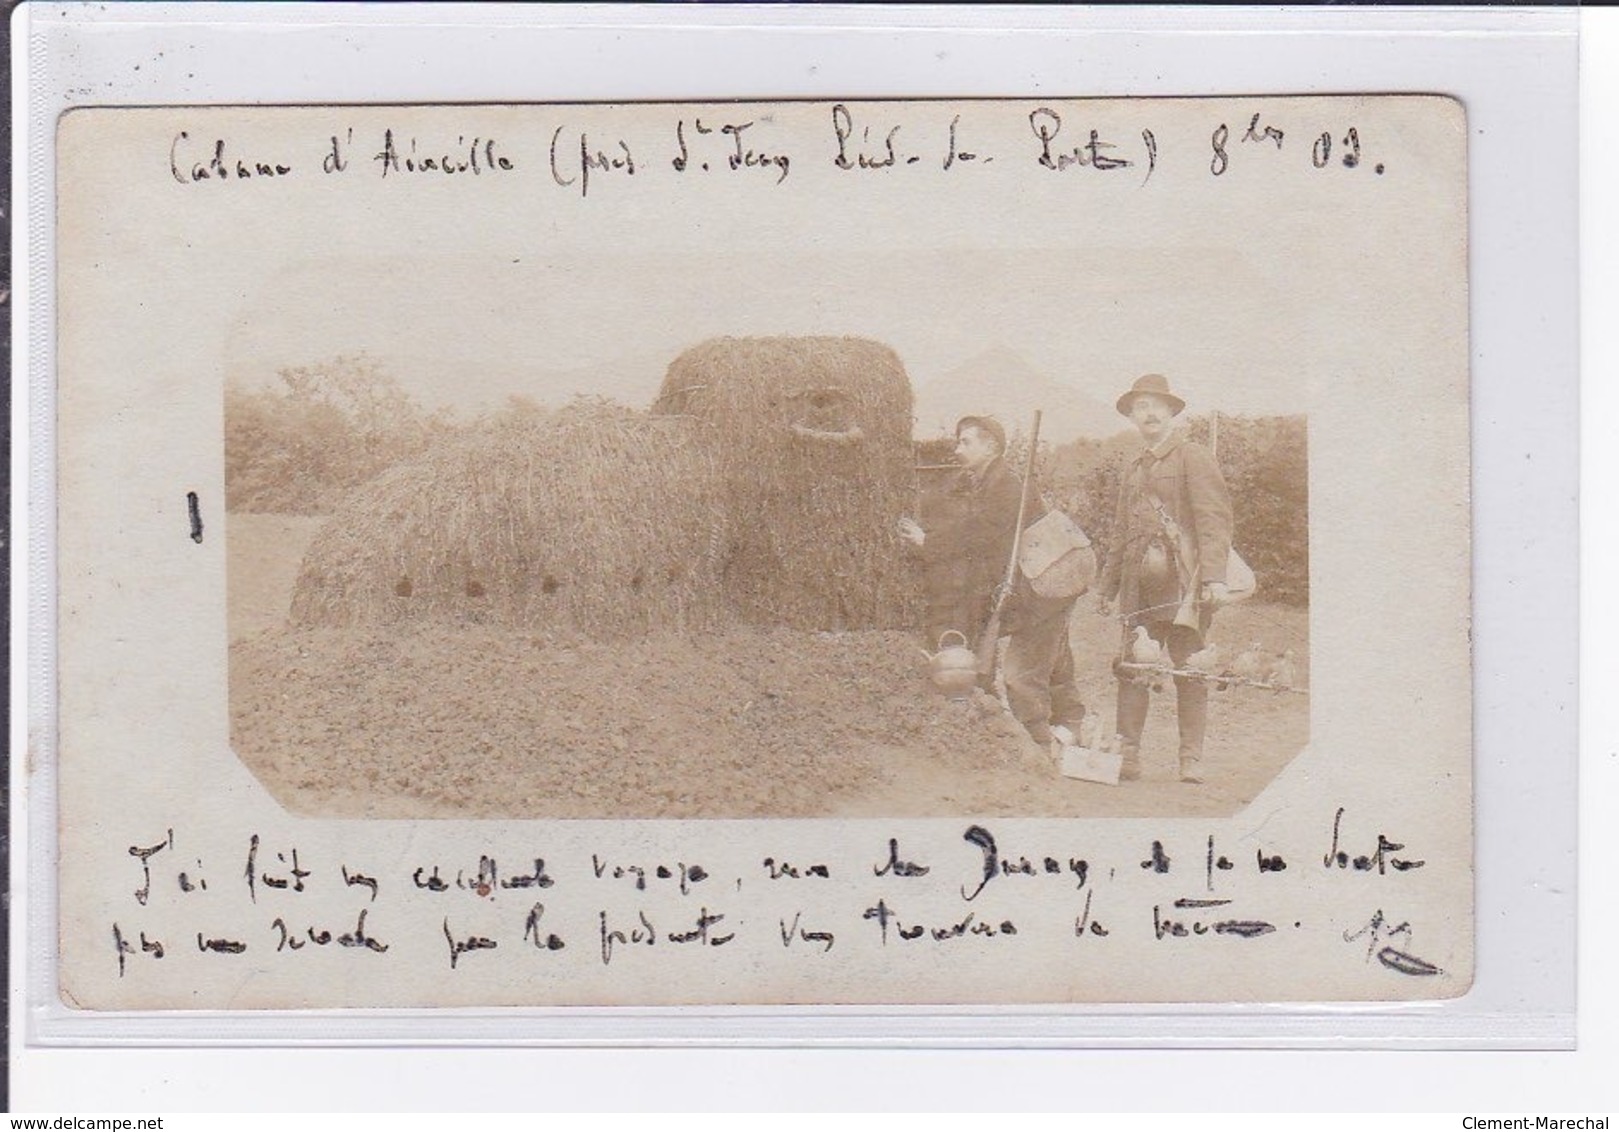 Cabane d'Aineille (près St Jean Pied-de-Port) 8bre 03.
J'ai fait un excellent voyage, vers les et je ne doute
pas que la présente vous trouvera de même.
delcampe.net
Clement-Marechal